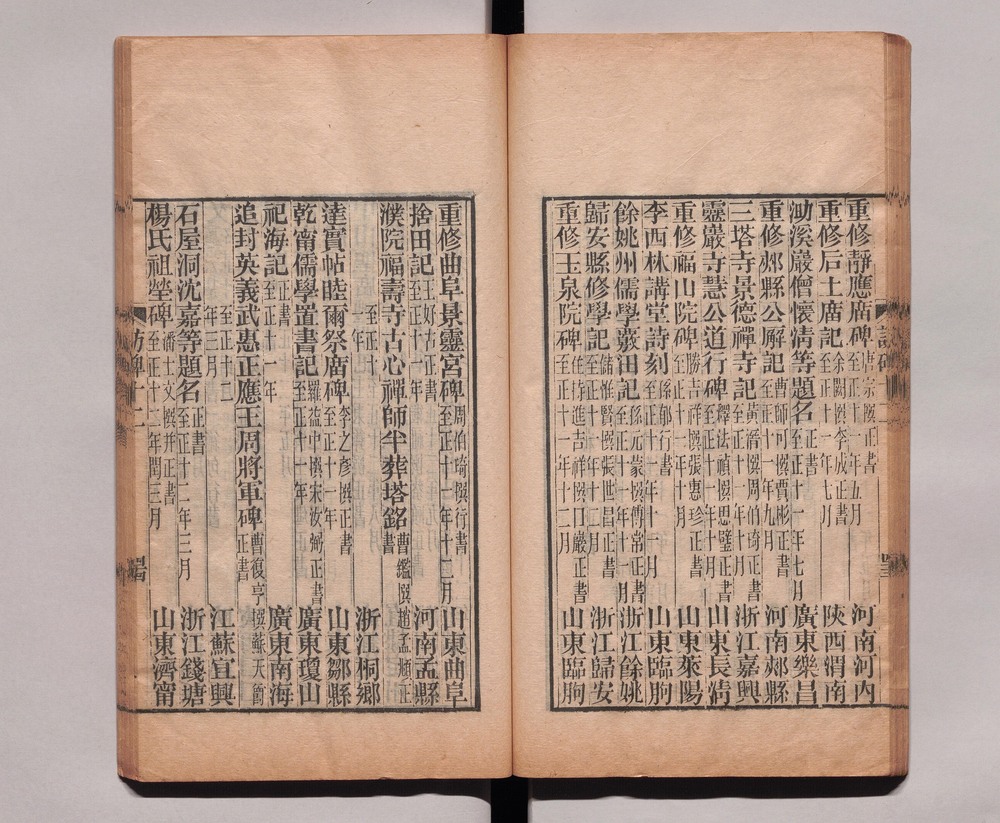 重修靜應廣碑 唐宗撰正書 至正十年五月 河南河内
重修后土廣記 余闕撰李成正書 至正十一年七月 陝西渭南
泐溪巖僧懷淸等題名 正書 至正十一年七月 廣東樂昌
重修郟縣公廨記 曹師可撰賈彬正書 至正十一年九月 河南郟縣
三塔寺景德禪寺記 黃溍撰周伯琦正書 至正十一年十月 浙江嘉興
靈巖寺慧公道行碑 釋法禎撰思璧正書 至正十一年十月 山東長淸
重修福山院碑 勝吉祥撰張惠珍正書 至正十一年十月 山東萊陽
李西林講堂詩刻 孫郁行書 至正十一年十一月 山東臨朐
餘姚州儒學覈田記 孫元蒙撰傅常正書 至正十一年十一月 浙江餘姚
歸安縣修學記 儲惟賢撰張世昌正書 至正十一年十二月 浙江歸安
重修玉泉院碑 住持進吉祥撰口嚴正書 至正十一年十二月 山東臨朐
訪碑
重修曲阜景靈宮碑 周伯琦撰行書 至正十一年十二月 山東曲阜
捨田記 王好古正書 至正十一年 河南孟縣
濮院福壽寺古心禪師半葬塔銘 曹鑑撰趙孟頫正書 至正十一年 浙江桐鄉
達實帖睦爾祭廣碑 李之彥撰正書 至正十一年 山東鄒縣
乾甯儒學置書記 羅益中撰宋汝弼正書 至正十一年 廣東瓊山
祀海記 正書 至正十一年 廣東南海
追封英義武惠正應王周將軍碑 曹復亨撰蘇天爵正書 至正十二年三月 江蘇宜興
石屋洞沈嘉等題名 正書 至正十二年三月 浙江錢塘
楊氏祖塋碑 潘士文撰幷正書 至正十二年閏三月 山東濟甯
訪碑十二